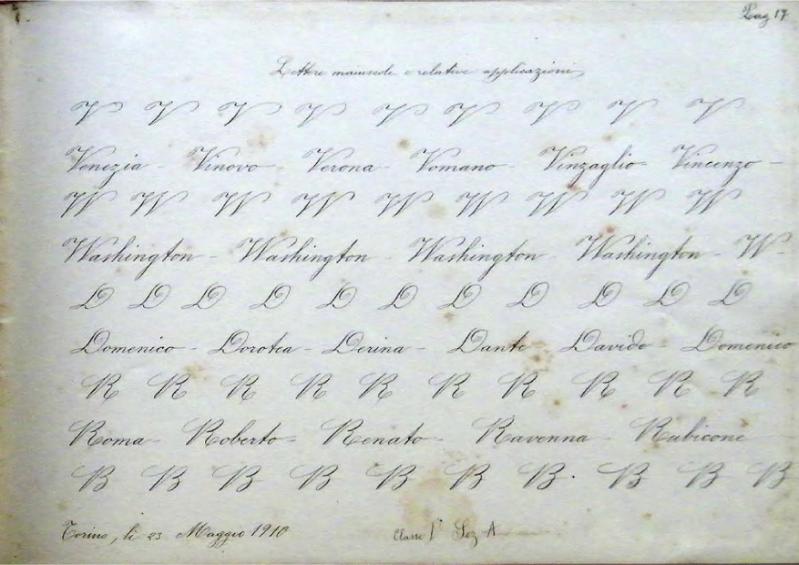 Pag 17
Lettere maiuscole e relative applicazioni
V V V V V V V V V
Venezia - Vinovo - Verona - Vomano - Vinzaglio - Vincenzo -
W W W W W W W W W
Washington - Washington - Washington - Washington - W-
D D D D D D D D D D D
Domenico - Dorotea - Derina - Dante Davide - Domenico
R R R R R R R R R R
Roma - Roberto - Renato - Ravenna - Rubicone
B B B B B B B B B B
Torino, li 23 Maggio 1910 Classe 1ª Sez A